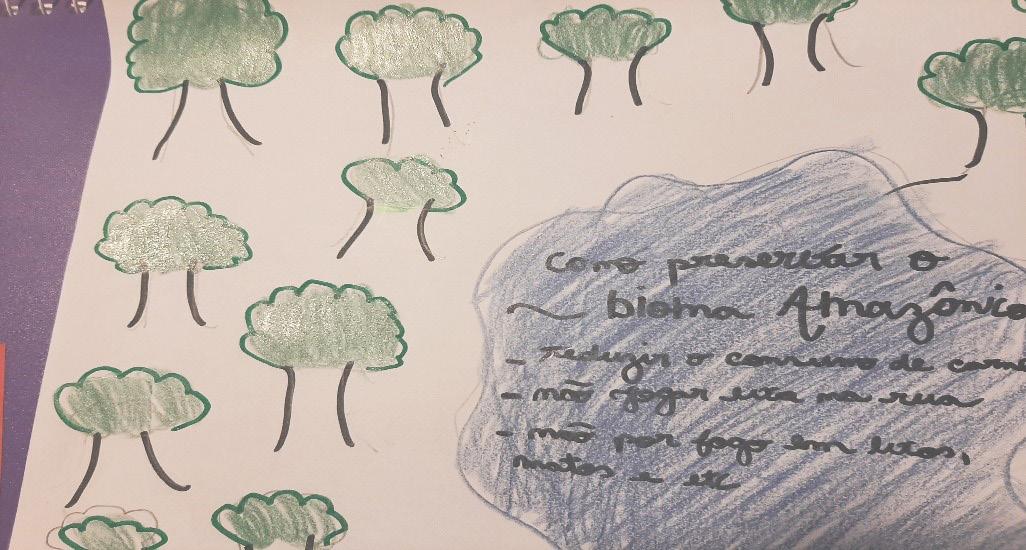 Como preservar o
bioma Amazônico
- reduzir o consumo de carne
- não jogar lixo na rua
- não por fogo em lixos,
matos e etc